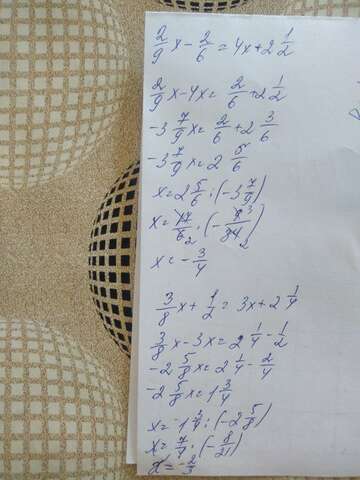 2/9 x - 2/6 = 4x + 2 1/2
2/9 x - 4x = 2/6 + 2 1/2
-3 7/9 x = 2/6 + 2 3/6
-3 7/9 x = 2 5/6
x = 2 5/6 : (-3 7/9)
x = 17/6 2 · (- 9 3/34 2)
x = - 3/4
3/8 x + 1/2 = 3x + 2 1/4
3/8 x - 3x = 2 1/4 - 1/2
-2 5/8 x = 2 1/4 - 2/4
-2 5/8 x = 1 3/4
x = 1 3/4 : (-2 5/8)
x = 7/4 · (- 8/21)
x = - 2/3